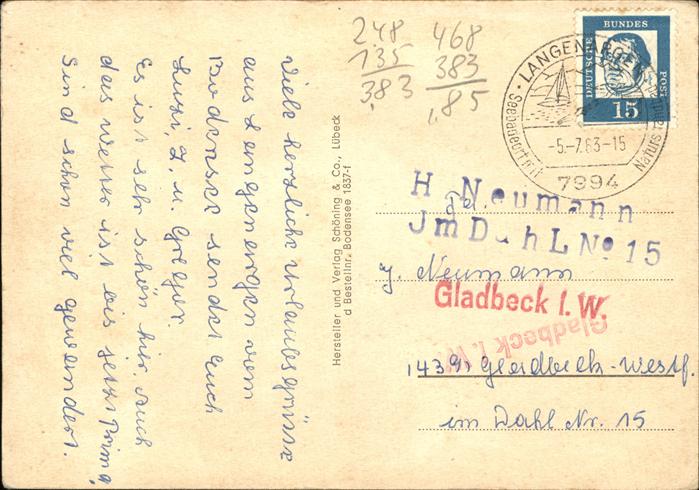 Viele herzliche Urlaubsgrüsse
aus Langenargen vom
Bodensee sendet Euch
Luzi, J. u. Gregor.
Es ist sehr schön hier. Auch
das Wetter ist bis jetzt Prima,
Sind schon viel gewandert.
Hersteller und Verlag Schöning & Co., Lübeck
d Bestellnr. Bodensee 1837-f
248
135
3,83
468
383
,85
DEUTSCHE
BUNDES
POST
15
LANGENARGEN
Seebadeort mit
Naturstr
-5.-7.63-15
7994
H. Neumann
JmDahLNº15
J. Neumann
Gladbeck I.W.
Gladbeck I.W.
1439 Gladbeck-Westf.
im Dahl Nr. 15